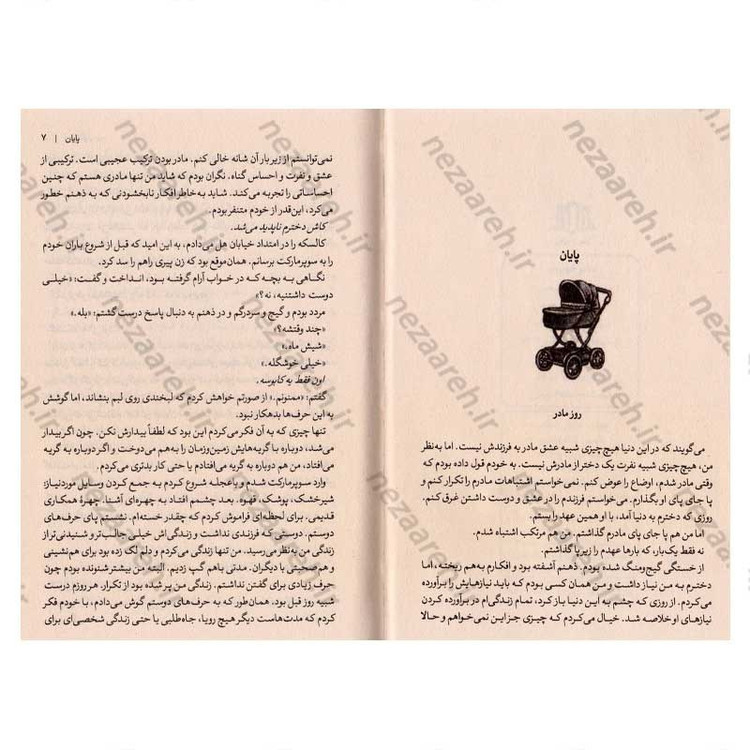 پایان
روز مادر
می‌گویند که در این دنیا هیچ‌چیزی شبیه عشق مادر به فرزندش نیست. اما به‌نظر
من، هیچ‌چیزی شبیه نفرت یک دختر از مادرش نیست. به خودم قول داده بودم که
وقتی مادر شدم، اوضاع را عوض کنم. نمی‌خواستم اشتباهات مادرم را تکرار کنم و
پا جای پای او بگذارم. می‌خواستم فرزندم را در عشق و دوست داشتن غرق کنم.
روزی که دخترم به دنیا آمد، با او همین عهد را بستم.
اما من هم پا جای پای مادرم گذاشتم. من هم مرتکب اشتباه شدم.
نه فقط یک‌بار، که بارها عهدم را زیر پا گذاشتم.
از خستگی گیج‌ومنگ شده بودم. ذهنم آشفته بود و افکارم به‌هم ریخته، اما
دخترم به من نیاز داشت و من همان کسی بودم که باید نیازهایش را برآورده
می‌کردم. از روزی که چشم به این دنیا باز کرد، تمام زندگی‌ام در برآورده کردن
نیازهای او خلاصه شد. خیال می‌کردم که چیزی جز این نمی‌خواهم و حالا
پایان | ۷
نمی‌توانستم از زیر بار آن شانه خالی کنم. مادر بودن ترکیب عجیبی است. ترکیبی از
عشق و نفرت و احساس گناه. نگران بودم که شاید من تنها مادری هستم که چنین
احساساتی را تجربه می‌کند. شاید به خاطر افکار نابخشودنی که به ذهنم خطور
می‌کرد، این‌قدر از خودم متنفر بودم.
کاش دخترم ناپدید می‌شد.
کالسکه را در امتداد خیابان هل می‌دادم، به این امید که قبل از شروع باران خودم
را به سوپرمارکت برسانم. همان‌موقع بود که زن پیری راهم را سد کرد.
نگاهی به بچه که در خواب آرام گرفته بود، انداخت و گفت: «خیلی
دوست داشتنیه، نه؟»
مردد بودم و گیج و سردرگم و در ذهنم به دنبال پاسخ درست گشتم: «بله.»
«چند وقتشه؟»
«شیش ماه.»
«خیلی خوشگله.»
اون فقط یه کابوسه.
گفتم: «ممنونم.» از صورتم خواهش کردم که لبخندی روی لبم بنشاند، اما گوشش
به این حرف‌ها بدهکار نبود.
تنها چیزی که به آن فکر می‌کردم این بود که لطفاً بیدارش نکن. چون اگر بیدار
می‌شد، دوباره با گریه‌هایش زمین‌وزمان را به‌هم می‌دوخت و اگر دوباره به گریه
می‌افتاد، من هم دوباره به گریه می‌افتادم یا حتی کار بدتری می‌کردم.
وارد سوپرمارکت شدم و باعجله شروع کردم به جمع کردن وسایل موردنیاز:
شیرخشک، پوشک، قهوه. بعد چشمم افتاد به چهره‌ای آشنا. چهرهٔ همکاری
قدیمی. برای لحظه‌ای فراموش کردم که چقدر خسته‌ام. نشستم پای حرف‌های
دوستم. دوستی که فرزندی نداشت و زندگی‌اش خیلی جالب‌تر و شنیدنی‌تر از
من به‌نظر می‌رسید. من تنها زندگی می‌کردم و دلم لک زده بود برای هم‌نشینی
و هم‌صحبتی با دیگران. مدتی باهم گپ زدیم. البته من بیشتر شنونده بودم چون
حرف زیادی برای گفتن نداشتم. زندگی من پر شده بود از تکرار. هر روزم درست
شبیه روز قبل بود. همان‌طور که به حرف‌های دوستم گوش می‌دادم، با خودم فکر
کردم که مدت‌هاست دیگر هیچ رویا، جاه‌طلبی یا حتی زندگی شخصی‌ای برای
nezaareh.ir